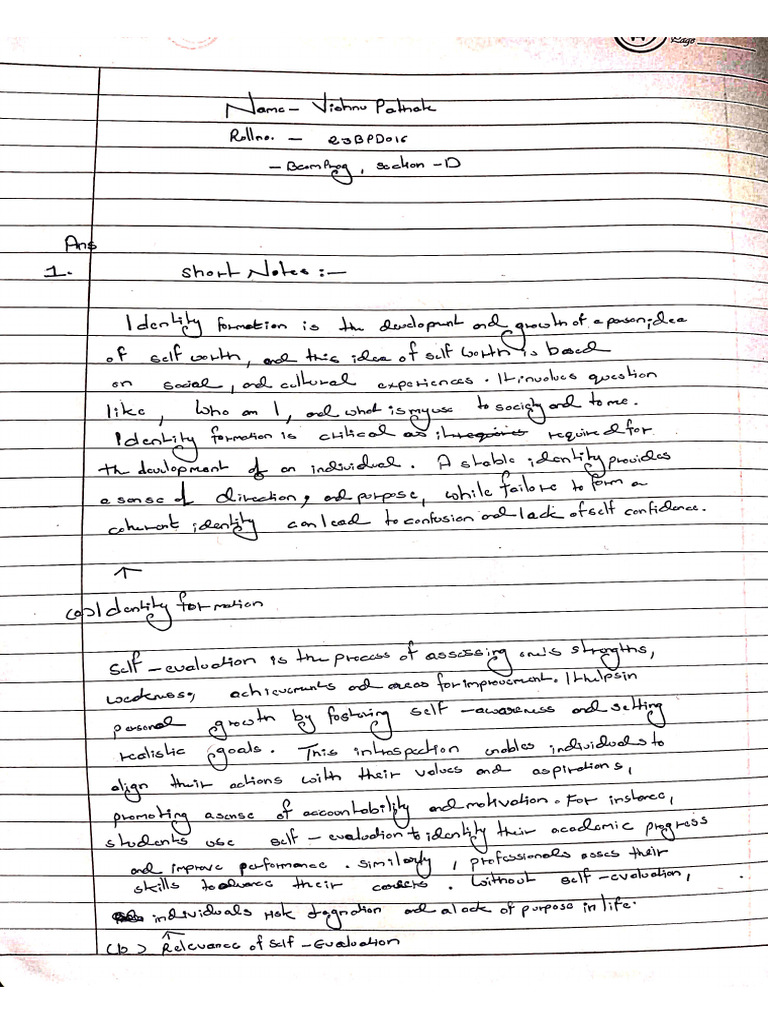 Page
Name - Vishnu Pathak
Rollno. - 23BPD016
- Bcom Prog, Section - D
Ans
1. Short Notes :-
Identity formation is the development and growth of a person; idea
of self worth, and this idea of self worth is based
on social, and cultural experiences. It involves question
like, Who am I, and what is my use to society and to me.
Identity formation is critical as it requires required for
the development of an individual. A stable identity provides
a sense of direction, and purpose, while failure to form a
coherent identity can lead to confusion and lack of self confidence.
↑
(a) Identity formation
Self-evaluation is the process of assessing one's strengths,
weakness, achievements and areas for improvement. It helps in
personal growth by fostering self-awareness and setting
realistic goals. This introspection enables individuals to
align their actions with their values and aspirations,
promoting a sense of accountability and motivation. For instance,
students use self-evaluation to identity their academic progress
and improve performance. Similarly, professionals asses their
skills to advance their careers. Without self-evaluation,
individuals risk stagnation and a lack of purpose in life.
↑
(b) Relevance of Self-Evaluation